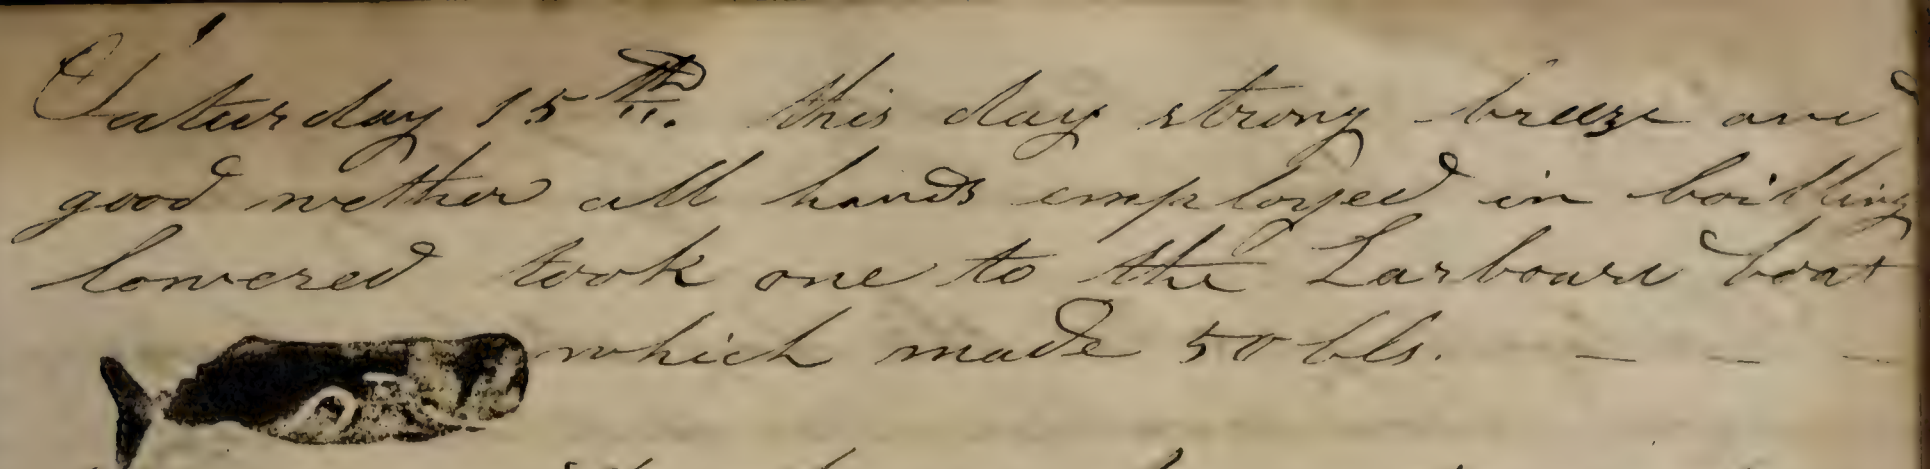 Saturday 15th. this day strong breeze and
good wether all hands employed in boilling
lowered took one to the Larboard boat
which made 50 bls. — — —